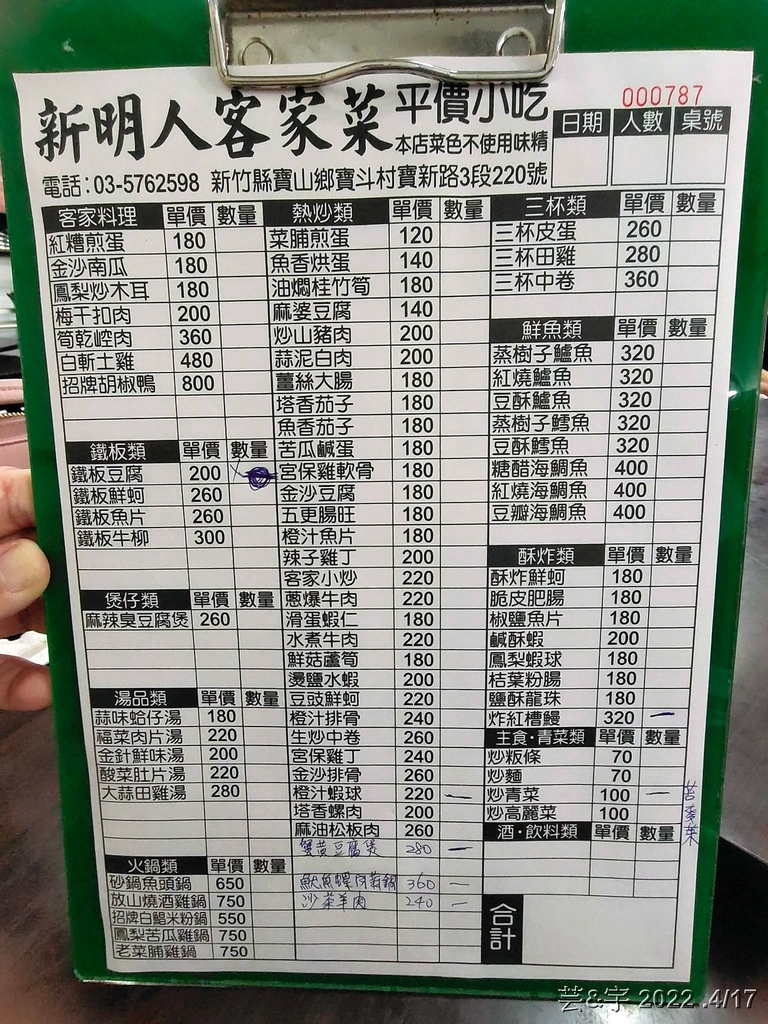 新明人客家菜 平價小吃
本店菜色不使用味精
000787
日期 人數 桌號
電話:03-5762598 新竹縣寶山鄉寶斗村寶新路3段220號
客家料理 單價 數量
紅糟煎蛋 180
金沙南瓜 180
鳳梨炒木耳 180
梅干扣肉 200
筍乾焢肉 360
白斬土雞 480
招牌胡椒鴨 800
鐵板類 單價 數量
鐵板豆腐 200
鐵板鮮蚵 260
鐵板魚片 260
鐵板牛柳 300
煲仔類 單價 數量
麻辣臭豆腐煲 260
湯品類 單價 數量
蒜味蛤仔湯 180
福菜肉片湯 220
金針鮮味湯 200
酸菜肚片湯 220
大蒜田雞湯 280
火鍋類 單價 數量
砂鍋魚頭鍋 650
放山燒酒雞鍋 750
招牌白鯧米粉鍋 550
鳳梨苦瓜雞鍋 750
老菜脯雞鍋 750
熱炒類 單價 數量
菜脯煎蛋 120
魚香烘蛋 140
油燜桂竹筍 180
麻婆豆腐 140
炒山豬肉 200
蒜泥白肉 200
薑絲大腸 180
塔香茄子 180
魚香茄子 180
苦瓜鹹蛋 180
宮保雞軟骨 180
金沙豆腐 180
五更腸旺 180
橙汁魚片 180
辣子雞丁 200
客家小炒 220
蔥爆牛肉 220
滑蛋蝦仁 180
水煮牛肉 220
鮮菇蘆筍 180
燙鹽水蝦 200
豆豉鮮蚵 220
橙汁排骨 240
生炒中卷 260
宮保雞丁 240
金沙排骨 260
橙汁蝦球 220 一
塔香螺肉 200
麻油松板肉 260
蟹黃豆腐煲 280 一
魷魚螺肉蒜鍋 360 一
沙茶羊肉 240 一
三杯類 單價 數量
三杯皮蛋 260
三杯田雞 280
三杯中卷 360
鮮魚類 單價 數量
蒸樹子鱸魚 320
紅燒鱸魚 320
豆酥鱸魚 320
蒸樹子鱈魚 320
豆酥鱈魚 320
糖醋海鯛魚 400
紅燒海鯛魚 400
豆瓣海鯛魚 400
酥炸類 單價 數量
酥炸鮮蚵 180
脆皮肥腸 180
椒鹽魚片 180
鹹酥蝦 200
鳳梨蝦球 180
桔葉粉腸 180
鹽酥龍珠 180
炸紅槽鰻 320 一
主食·青菜類 單價 數量
炒粄條 70
炒麵 70
炒青菜 100 一
炒高麗菜 100
酒·飲料類 單價 數量
合計
芸&宇 2022 .4/17